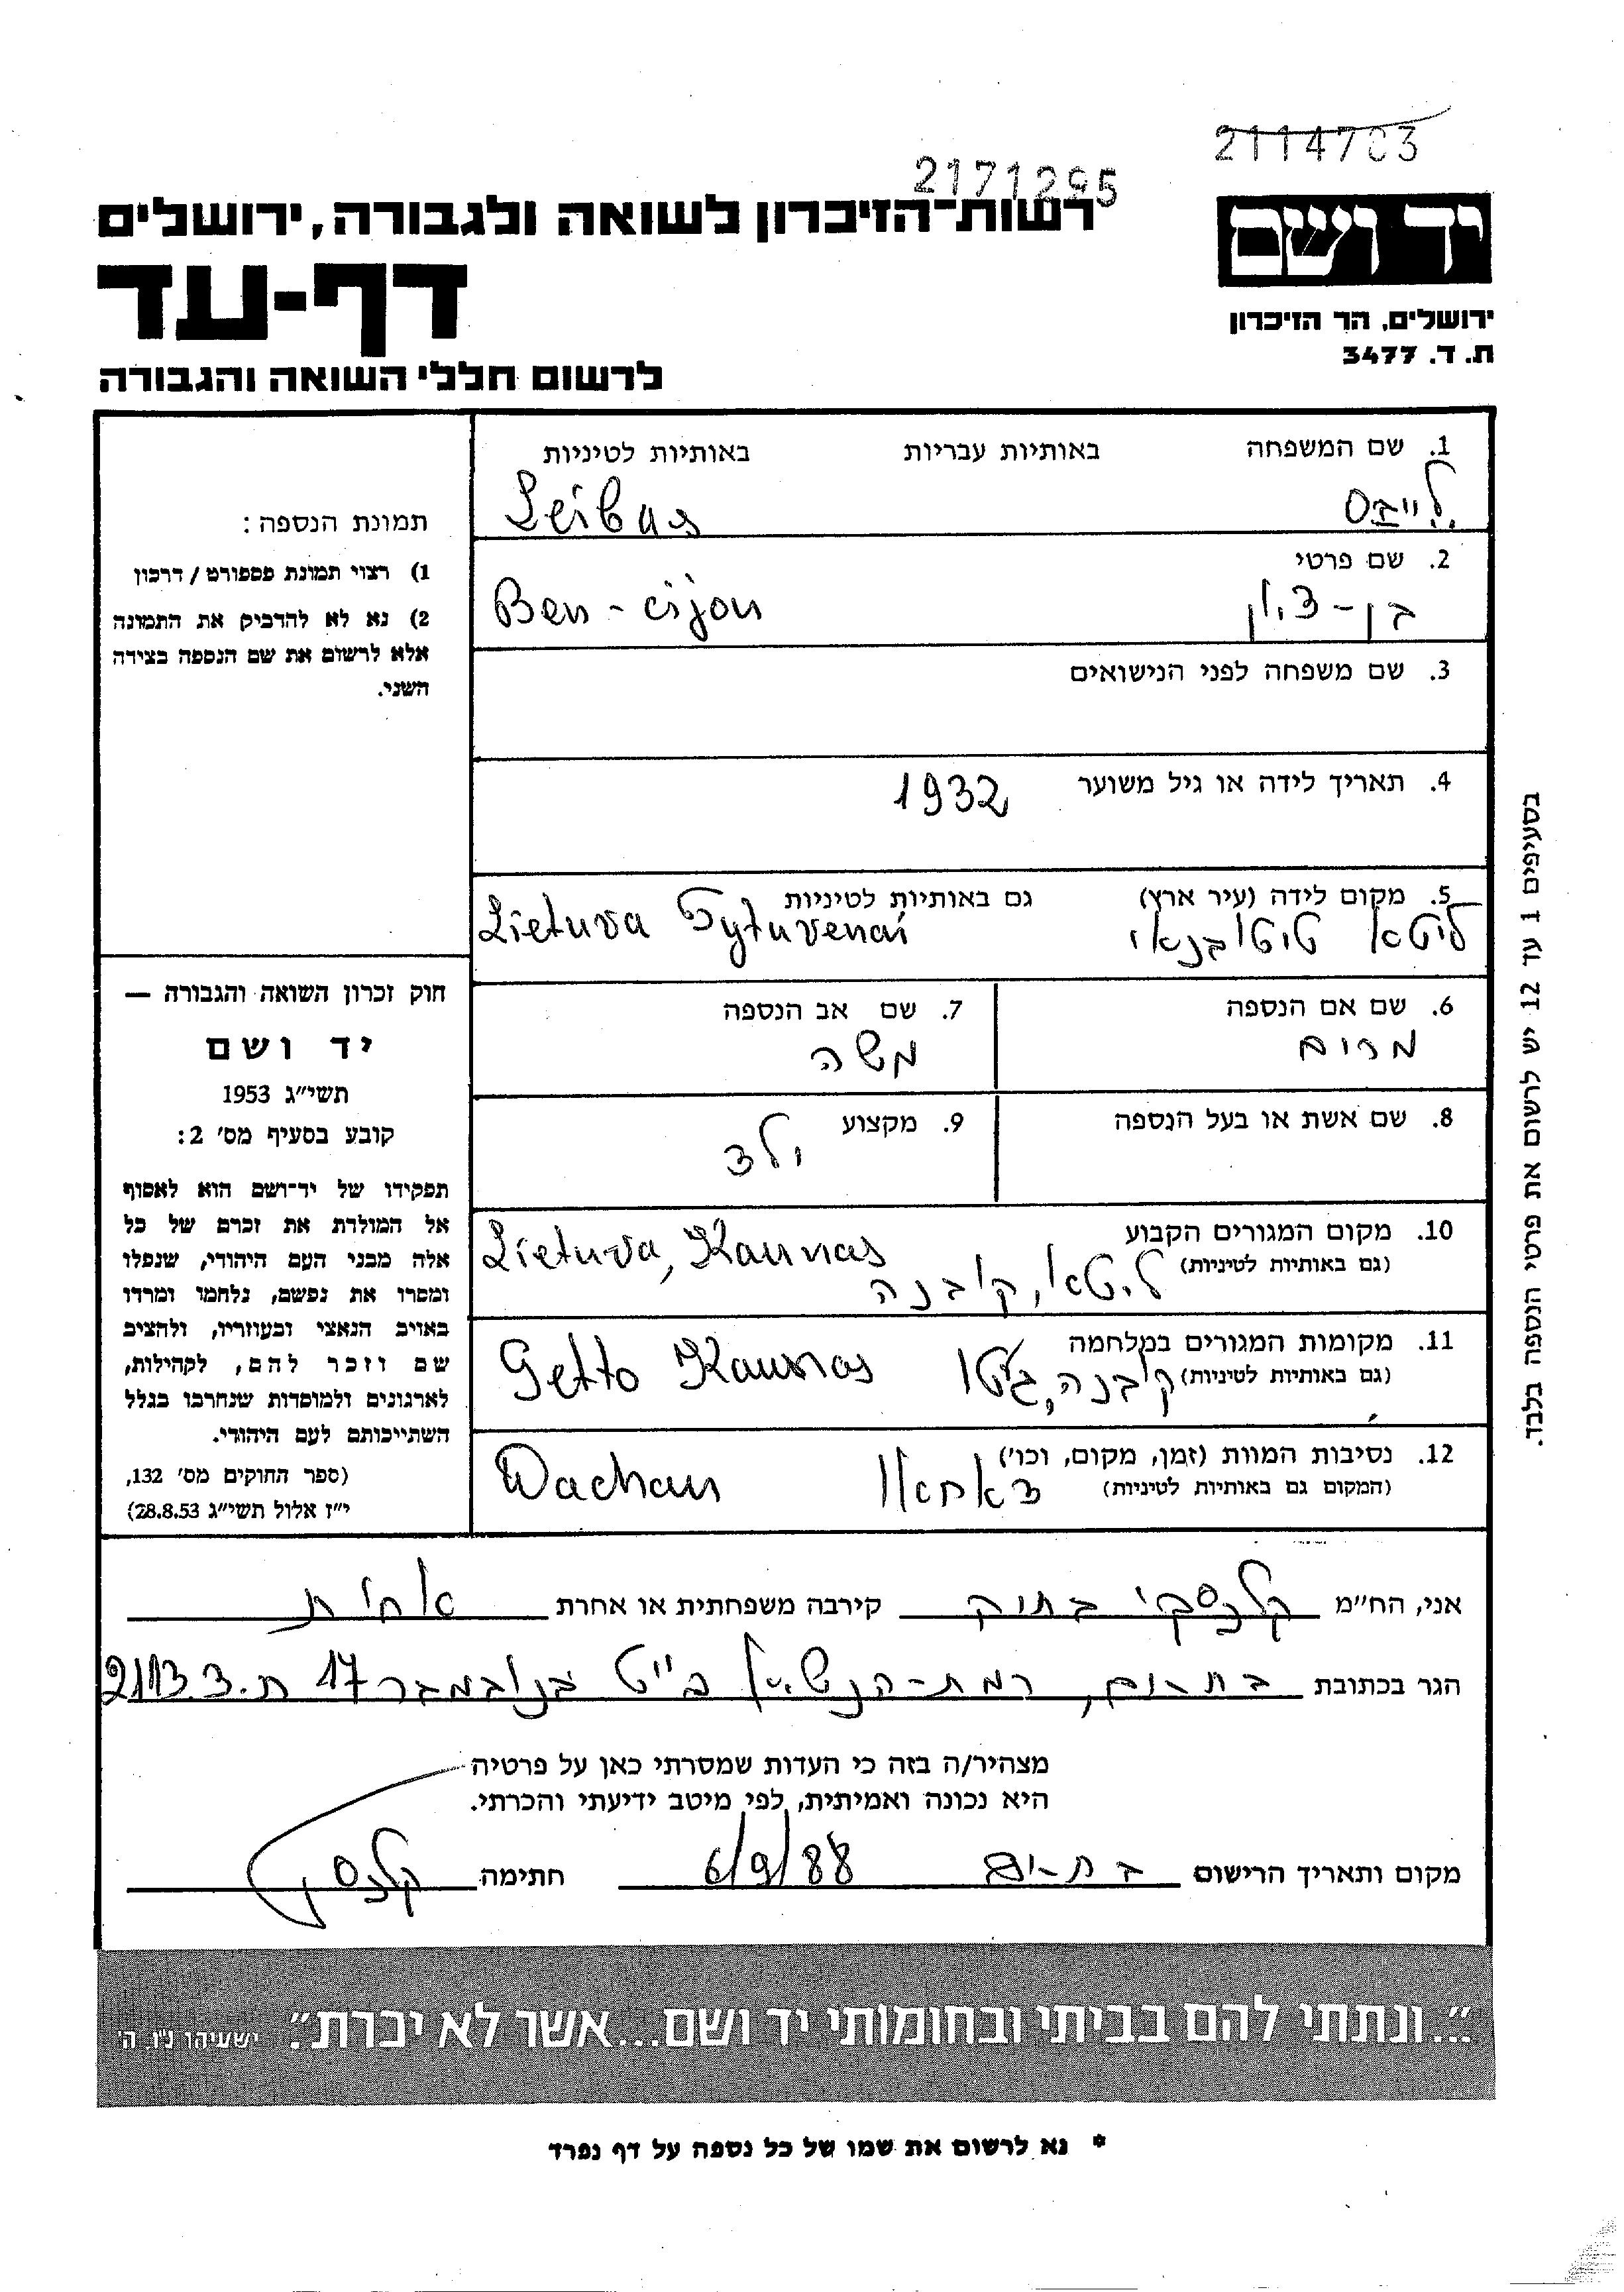 2114703
2171295
יד ושם
ירושלים, הר הזיכרון
ת. ד. 3477
רשות-הזיכרון לשואה ולגבורה, ירושלים
דף-עד
לרשום חללי השואה והגבורה
1. שם המשפחה באותיות עבריות באותיות לטיניות
לייבס Leibus
2. שם פרטי
בן-ציון Ben-cijon
3. שם משפחה לפני הנישואים
4. תאריך לידה או גיל משוער 1932
5. מקום לידה (עיר ארץ) גם באותיות לטיניות
ליטא טיטובנאי Lietuva Tytuvenai
6. שם אם הנספה
מרים
7. שם אב הנספה
משה
8. שם אשת או בעל הנספה
9. מקצוע
ילד
10. מקום המגורים הקבוע
(גם באותיות לטיניות)
ליטא, קובנה Lietuva, Kaunas
11. מקומות המגורים במלחמה
(גם באותיות לטיניות)
קובנה, גיטו Getto Kaunas
12. נסיבות המוות (זמן, מקום, וכו')
(המקום גם באותיות לטיניות)
דאחאו Dachau
תמונת הנספה:
1) רצוי תמונת פספורט / דרכון
2) נא לא להדביק את התמונה
אלא לרשום את שם הנספה בצידה
השני.
חוק זכרון השואה והגבורה —
יד ושם
תשי"ג 1953
קובע בסעיף מס' 2:
תפקידו של יד-ושם הוא לאסוף
אל המולדת את זכרם של כל
אלה מבני העם היהודי, שנפלו
ומסרו את נפשם, נלחמו ומרדו
באויב הנאצי ובעוזריו, ולהציב
שם וזכר להם, לקהילות,
לארגונים ולמוסדות שנחרבו בגלל
השתייכותם לעם היהודי.
(ספר החוקים מס' 132,
י"ז אלול תשי"ג 28.8.53)
בסעיפים 1 עד 12 יש לרשום את פרטי הנספה בלבד.
אני, הח"מ קירבה משפחתית או אחרת אחות
הגר בכתובת בת-ים, רמת-הנשיא כ"ט בנובמבר 17 ת.ד. 2113
מצהיר/ה בזה כי העדות שמסרתי כאן על פרטיה
היא נכונה ואמיתית, לפי מיטב ידיעתי והכרתי.
מקום ותאריך הרישום בת-ים 6/9/88 חתימה
"...ונתתי להם בביתי ובחומותי יד ושם...אשר לא יכרת". ישעיהו נ"ו, ה'
* נא לרשום את שמו של כל נספה על דף נפרד